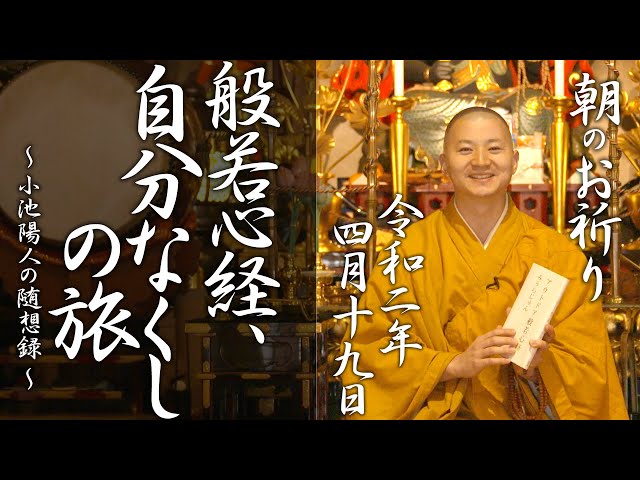 朝のお祈り
令和二年
四月十九日
般若心経、
自分なくし
の旅
~小池陽人の随想録~